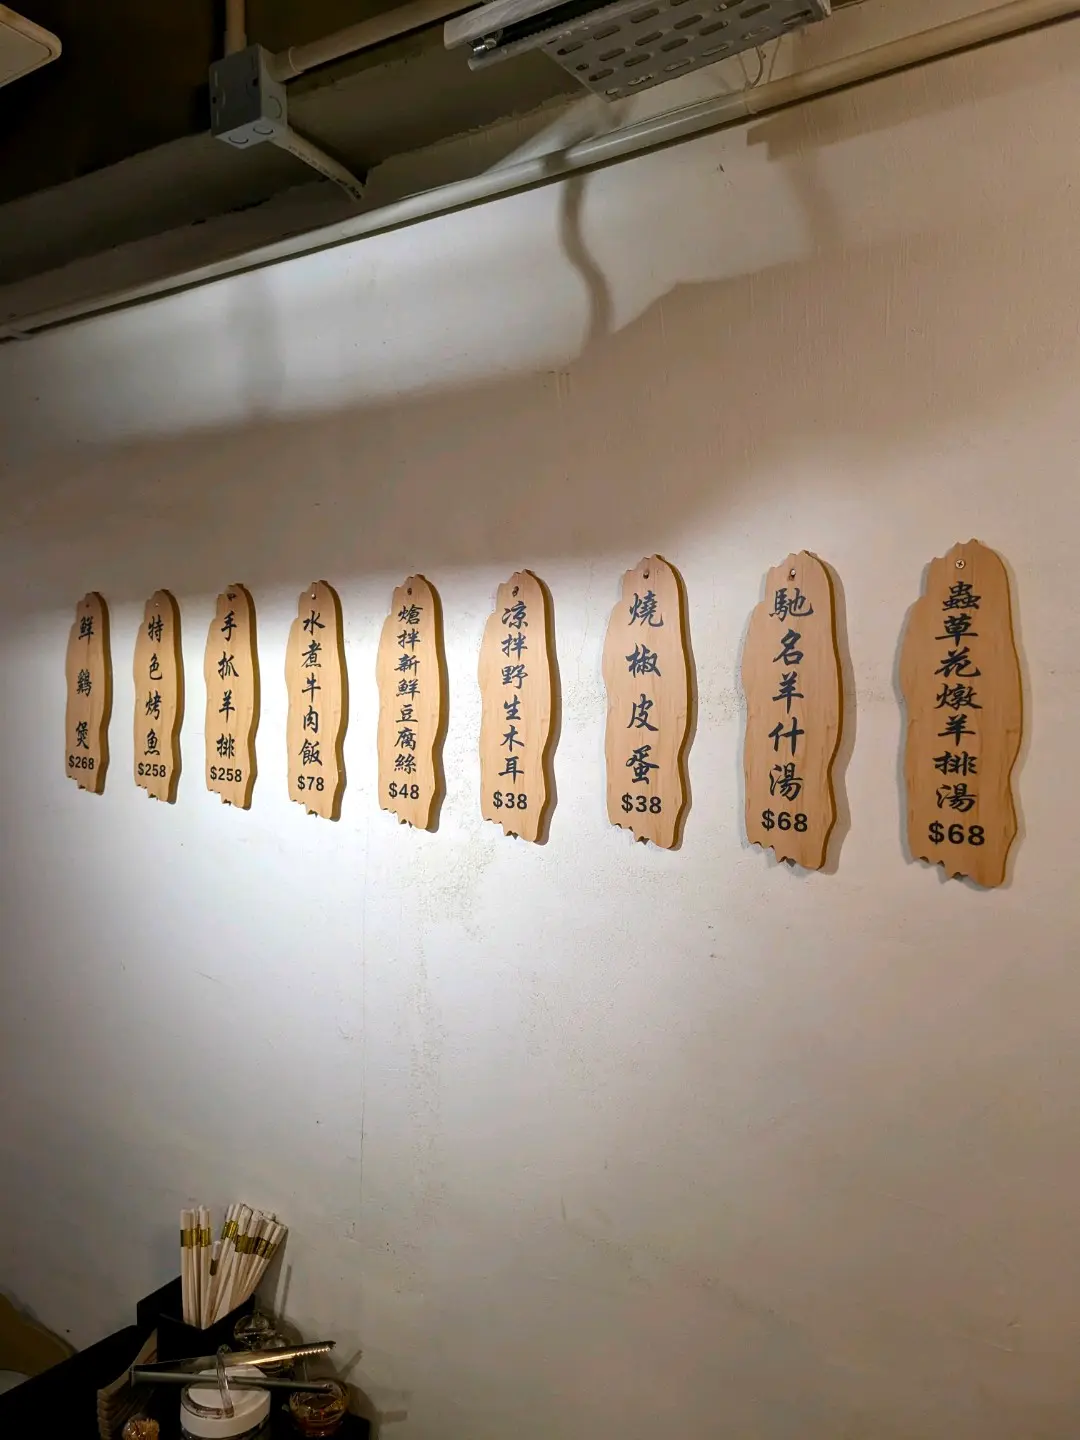 鮮鷄煲
$268
特色烤魚
$258
手抓羊排
$258
水煮牛肉飯
$78
熗拌新鮮豆腐絲
$48
凉拌野生木耳
$38
燒椒皮蛋
$38
馳名羊什湯
$68
蟲草花燉羊排湯
$68